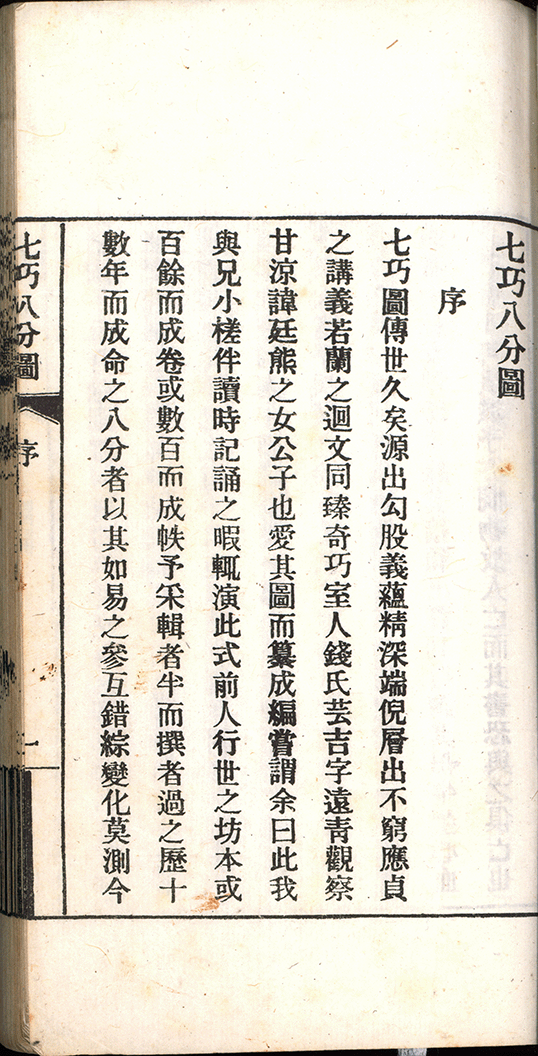 七巧八分圖
序
七巧圖傳世久矣源出勾股義蘊精深端倪層出不窮應貞
之講義若蘭之迴文同臻奇巧室人錢氏芸吉字遠青觀察
甘涼諱廷熊之女公子也愛其圖而纂成編嘗謂余曰此我
與兄小槎伴讀時記誦之暇輒演此式前人行世之坊本或
百餘而成卷或數百而成帙予采輯者半而撰者過之歷十
數年而成命之八分者以其如易之參互錯綜變化莫測今
七巧八分圖
序
一